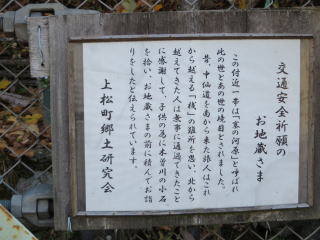 交通安全祈願の
お地蔵さま
この付近一帯は「賽の河原」と呼ばれ
此の世とあの世の境目とされました。
昔、中仙道を南から来た旅人はこれ
から越える「桟」の難所を思い、北から
越えてきた人は無事に通過できたこと
に感謝して、子供の為に木曽川の小石
を拾い、お地蔵さまの前に積んでお詣
りをしたと伝えられています。
上松町郷土研究会